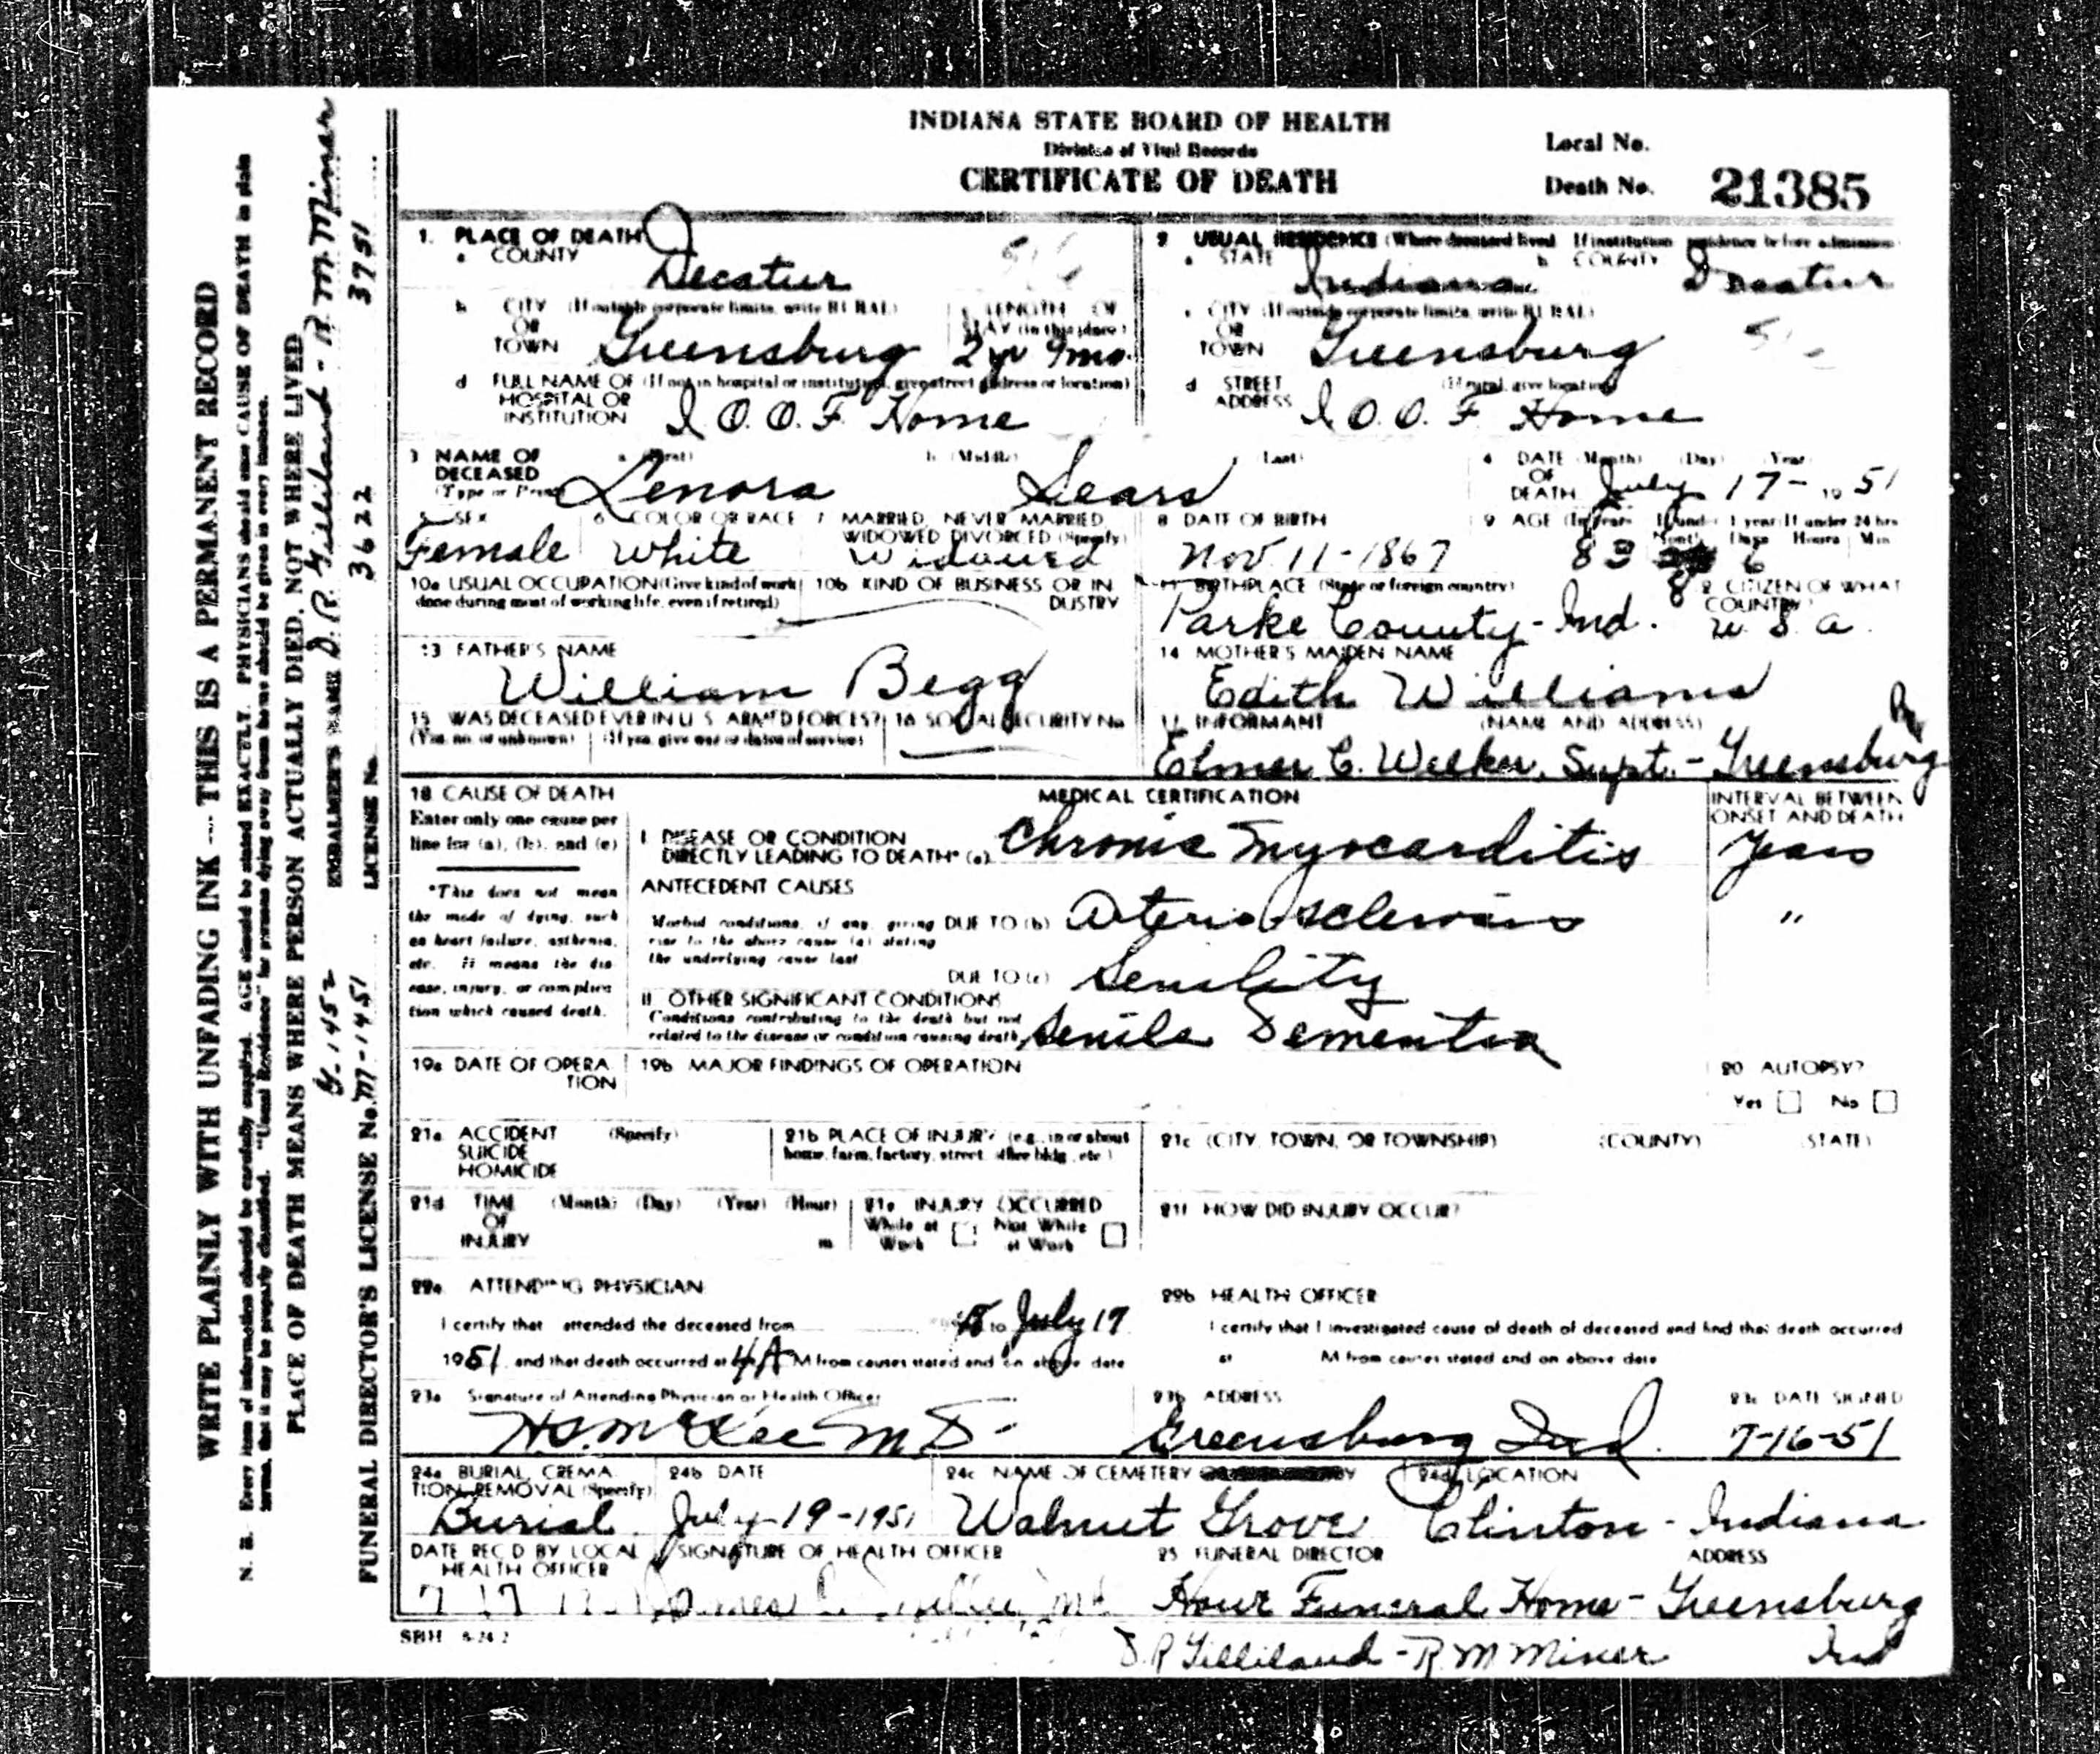 INDIANA STATE BOARD OF HEALTH
Division of Vital Records
CERTIFICATE OF DEATH
Local No.
Death No. 21385
WRITE PLAINLY WITH UNFADING INK --- THIS IS A PERMANENT RECORD
N. B. Every item of information should be carefully supplied. AGE should be stated EXACTLY. PHYSICIANS should state CAUSE OF DEATH in plain
terms, that it may be properly classified. "Usual Residence" for persons dying away from home should be given in every instance.
PLACE OF DEATH MEANS WHERE PERSON ACTUALLY DIED, NOT WHERE LIVED
EMBALMER'S NAME D. R. Gilliland - R. M. Miner
LICENSE No. 3622 3751
FUNERAL DIRECTOR'S LICENSE No. M-1451
G-1452
1. PLACE OF DEATH
a COUNTY Decatur
b CITY (If outside corporate limits, write RURAL) OR TOWN Greensburg
c LENGTH OF STAY (in this place) 2 yr 9 mo.
d FULL NAME OF (If not in hospital or institution, give street address or location) HOSPITAL OR INSTITUTION I.O.O.F. Home
2 USUAL RESIDENCE (Where deceased lived If institution residence before admission)
a STATE Indiana b COUNTY Decatur
c CITY (If outside corporate limits, write RURAL) OR TOWN Greensburg
d STREET ADDRESS (If rural, give location) I.O.O.F Home
3 NAME OF DECEASED (Type or Print) a (First) Lenora b (Middle) c (Last) Sears
4 DATE OF DEATH (Month) (Day) (Year) July 17- 1951
5 SEX Female
6 COLOR OR RACE White
7 MARRIED, NEVER MARRIED, WIDOWED DIVORCED (Specify) Widowed
8 DATE OF BIRTH Nov. 11-1867
9 AGE (In Years 83 If under 1 year Months 8 Days 6 If under 24 hrs Hours Min
10a USUAL OCCUPATION (Give kind of work done during most of working life, even if retired)
10b KIND OF BUSINESS OR INDUSTRY
11 BIRTHPLACE (State or foreign country) Parke County-Ind.
12 CITIZEN OF WHAT COUNTRY? U. S. A.
13 FATHER'S NAME William Begg
14 MOTHER'S MAIDEN NAME Edith Williams
15 WAS DECEASED EVER IN U. S. ARMED FORCES? (Yes, no, or unknown) (If yes, give war or dates of service)
16 SOCIAL SECURITY No
17 INFORMANT (NAME AND ADDRESS) Elmer C. Welker, Supt. - Greensburg
18 CAUSE OF DEATH
Enter only one cause per line for (a), (b), and (c)
*This does not mean the mode of dying, such as heart failure, asthenia, etc. It means the disease, injury, or complication which caused death.
MEDICAL CERTIFICATION
INTERVAL BETWEEN ONSET AND DEATH
I DISEASE OR CONDITION DIRECTLY LEADING TO DEATH* (a) Chronic Myocarditis Years
ANTECEDENT CAUSES
Morbid conditions, if any, giving rise to the above cause (a) stating the underlying cause last
DUE TO (b) Arteriosclerosis "
DUE TO (c) Senility
II OTHER SIGNIFICANT CONDITIONS
Conditions contributing to the death but not related to the disease or condition causing death Senile Dementia
19a DATE OF OPERATION
19b MAJOR FINDINGS OF OPERATION
20 AUTOPSY? Yes No
21a ACCIDENT SUICIDE HOMICIDE (Specify)
21b PLACE OF INJURY (e.g., in or about home, farm, factory, street, office bldg., etc.)
21c (CITY, TOWN, OR TOWNSHIP) (COUNTY) (STATE)
21d TIME OF INJURY (Month) (Day) (Year) (Hour) m
21e INJURY OCCURRED While at Work Not While at Work
21f HOW DID INJURY OCCUR?
22a ATTENDING PHYSICIAN
I certify that attended the deceased from to July 17
1951, and that death occurred at 4 A M from causes stated and on above date
22b HEALTH OFFICER
I certify that I investigated cause of death of deceased and find that death occurred
at M from causes stated and on above date
23a Signature of Attending Physician or Health Officer H.S. McKee M D-
23b ADDRESS Greensburg Ind.
23c DATE SIGNED 7-16-51
24a BURIAL, CREMATION, REMOVAL (Specify) Burial
24b DATE July-19-1951
24c NAME OF CEMETERY Walnut Grove
24d LOCATION Clinton - Indiana
DATE REC'D BY LOCAL HEALTH OFFICER 7 17
SIGNATURE OF HEALTH OFFICER
25 FUNERAL DIRECTOR ADDRESS
Funeral Home - Greensburg
D. R Gilliland - R. M Miner Ind
SBH 6-24-2